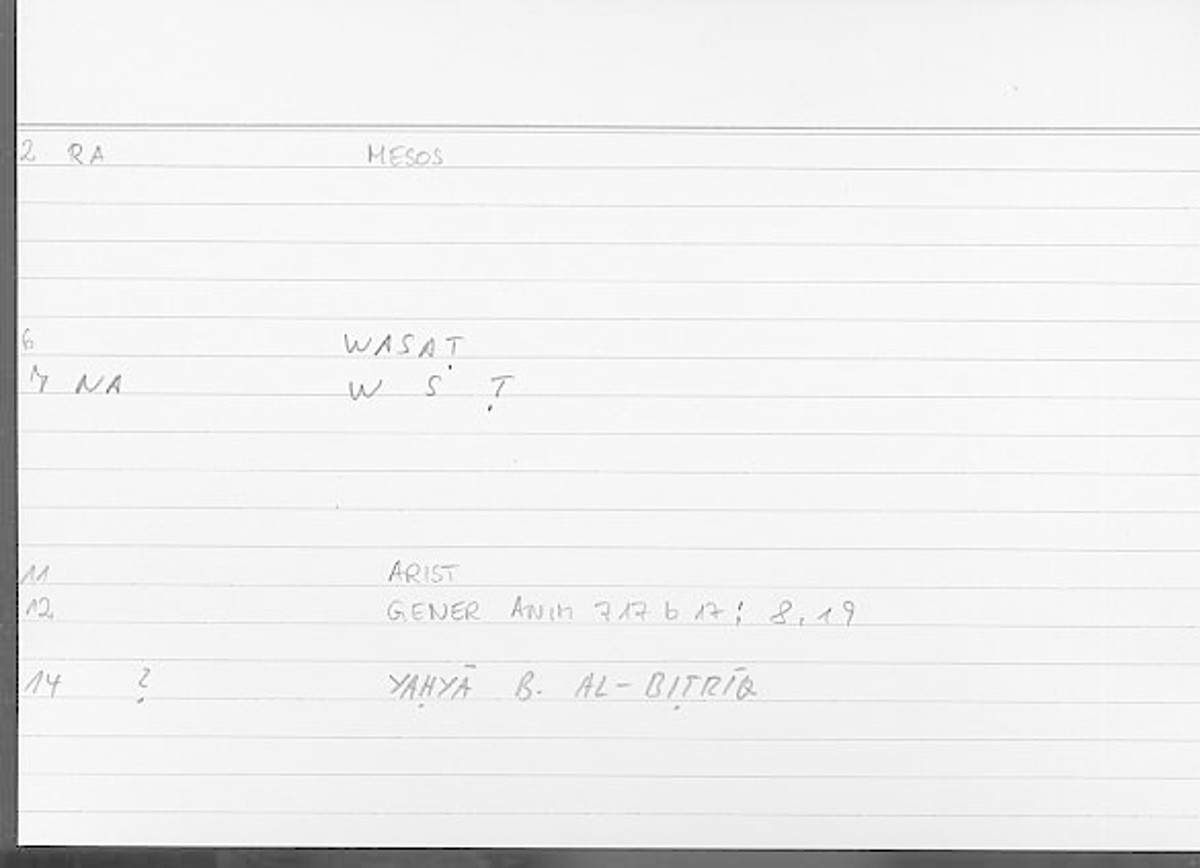 2 RA MESOS
6 WASAṬ
7 NA W S Ṭ
11 ARIST
12 GENER ANIM 717 b 17; 8, 19
14 ? YAḤYĀ B. AL-BIṬRĪQ